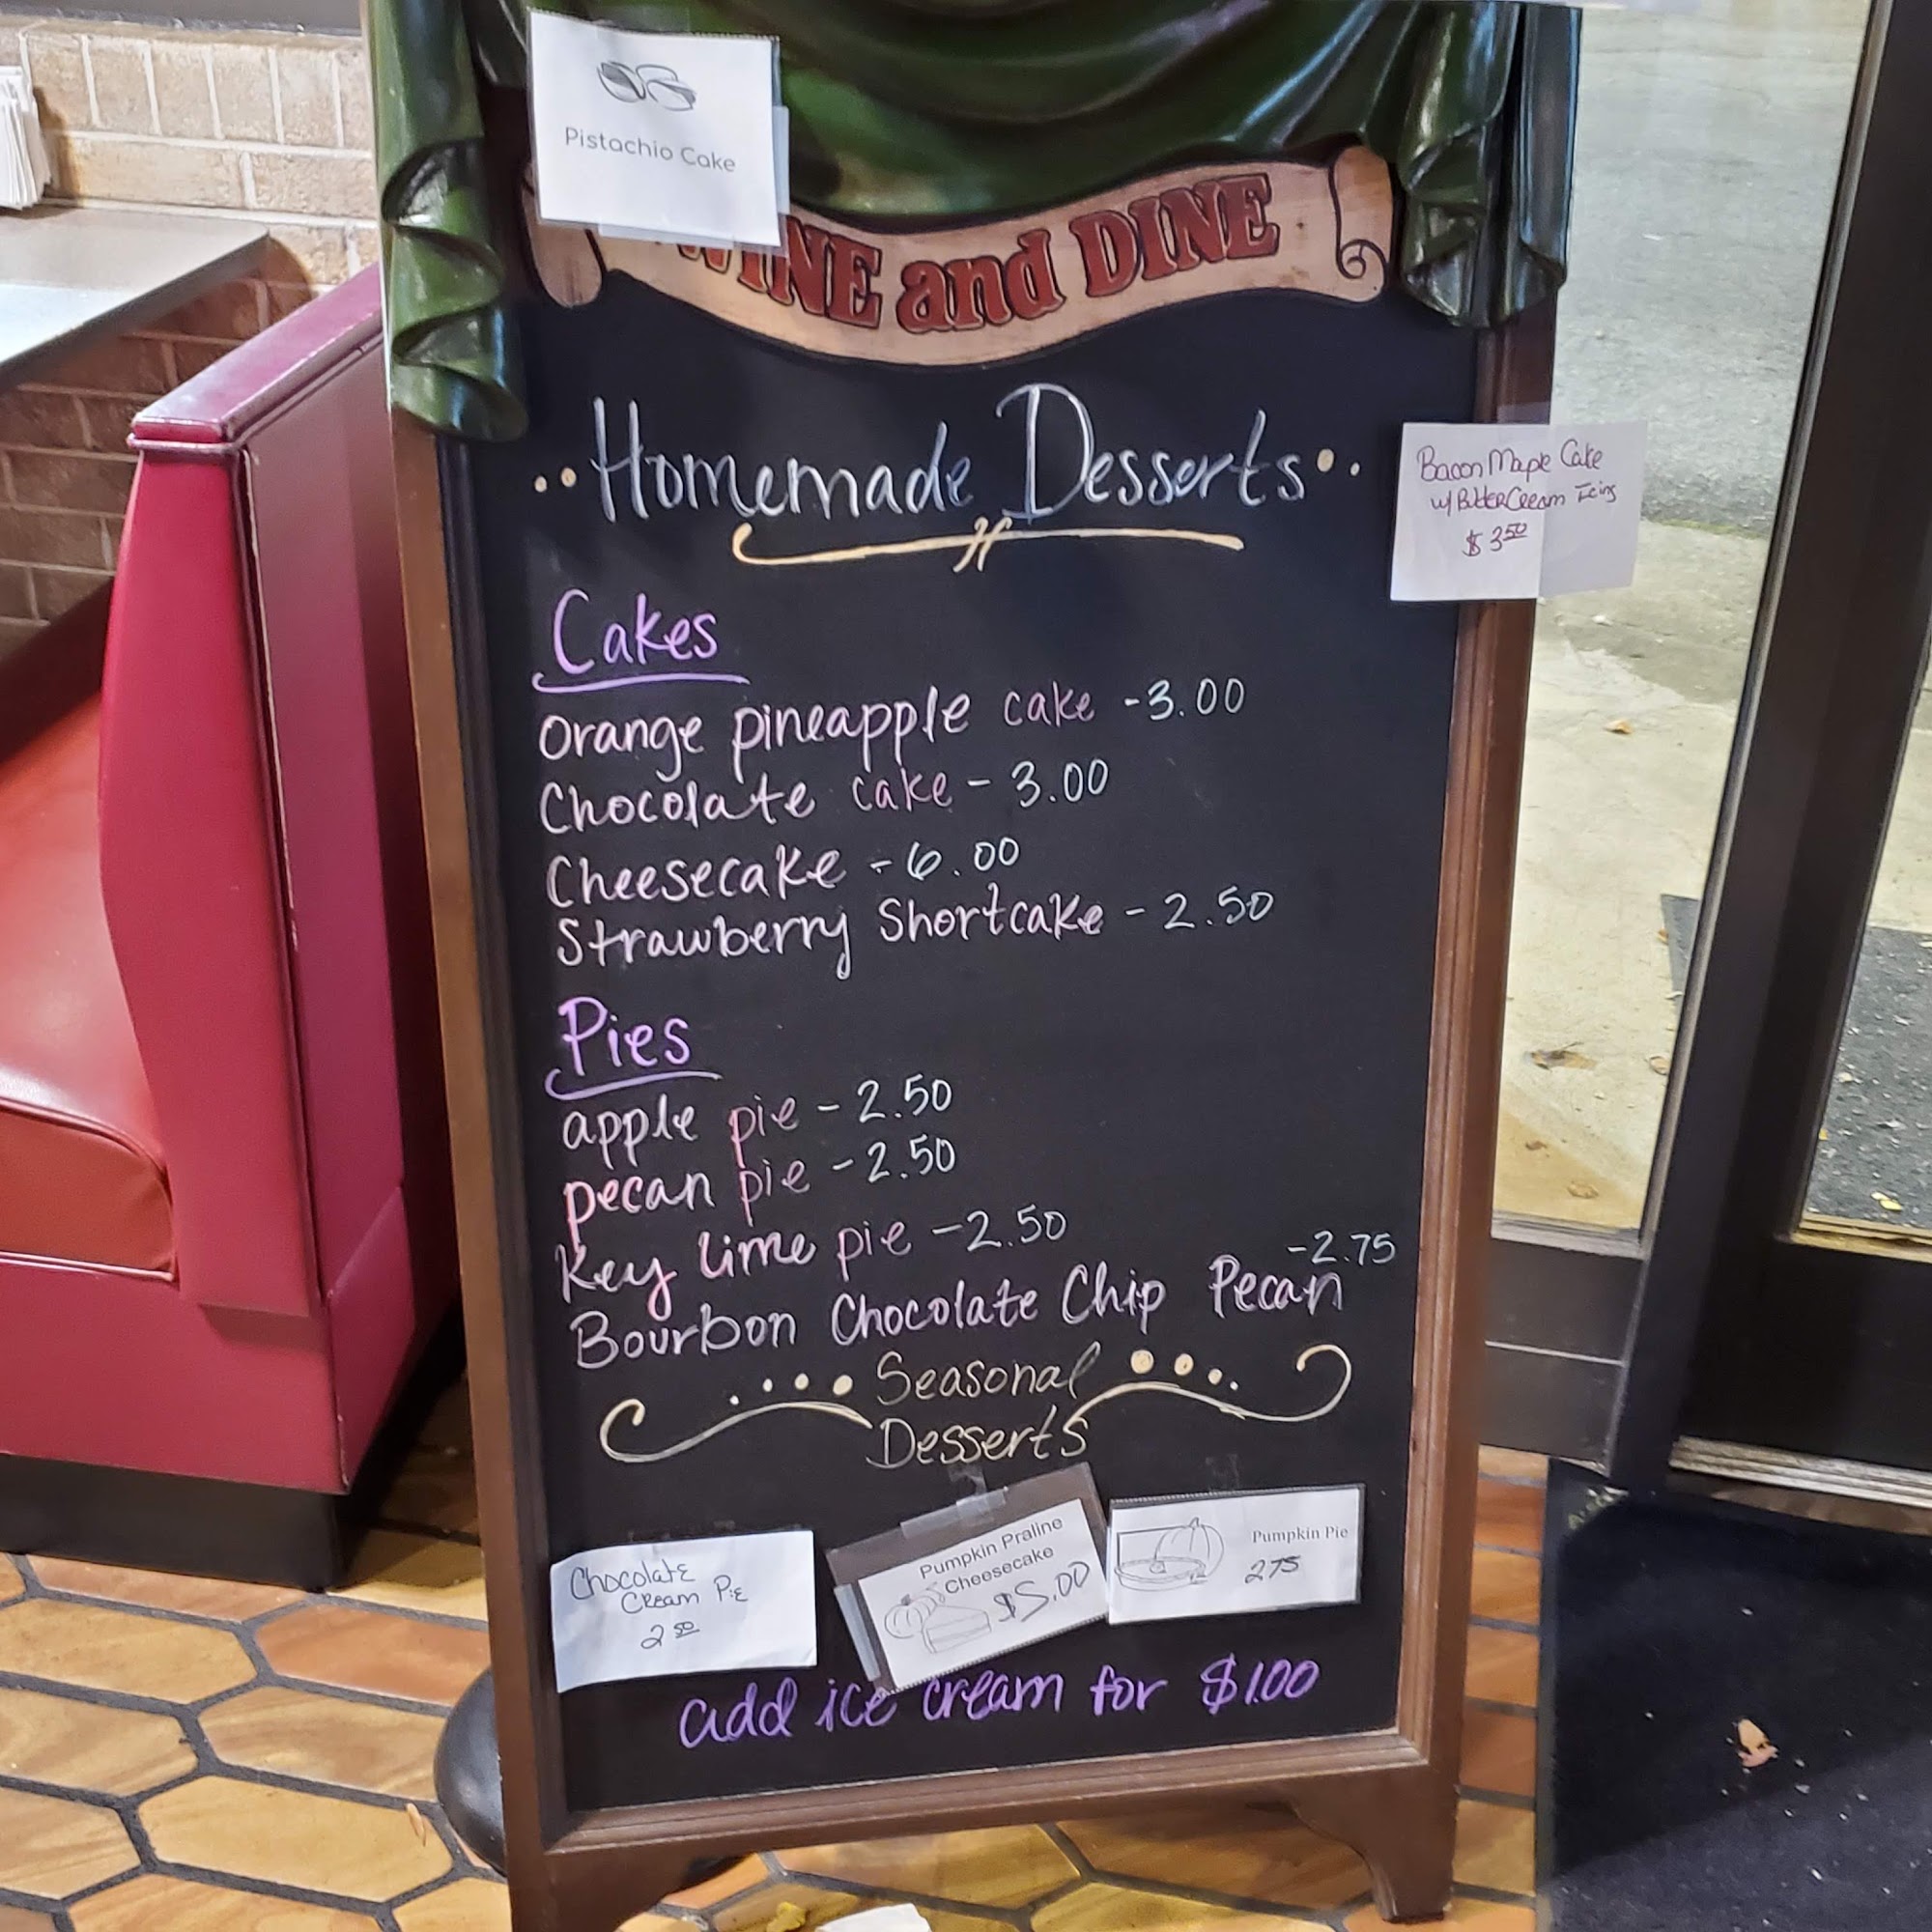 Pistachio Cake
WINE and DINE
Homemade Desserts
Bacon Maple Cake
w/ ButterCream Icing
$ 3.50
Cakes
Orange pineapple cake - 3.00
Chocolate cake - 3.00
Cheesecake - 6.00
Strawberry Shortcake - 2.50
Pies
apple pie - 2.50
pecan pie - 2.50
Key lime pie - 2.50
-2.75
Bourbon Chocolate Chip Pecan
Seasonal
Desserts
Chocolate
Cream Pie
2.50
Pumpkin Praline
Cheesecake
$5.00
Pumpkin Pie
2.75
add ice cream for $1.00